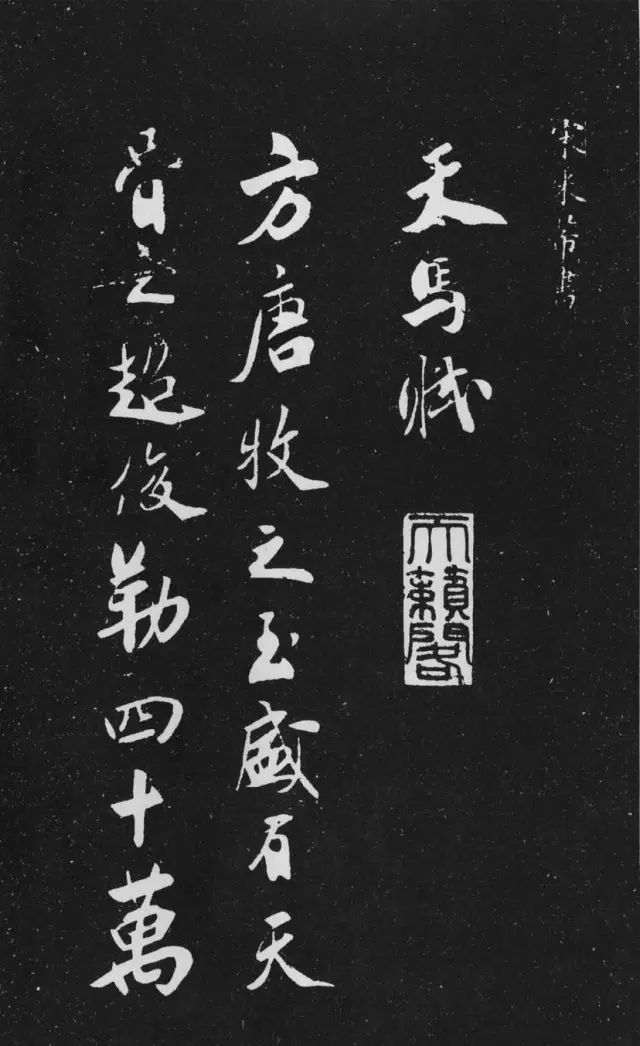 宋米芾書
天馬賦
天籟閣
方唐牧之至盛有天
骨之超俊勒四十萬